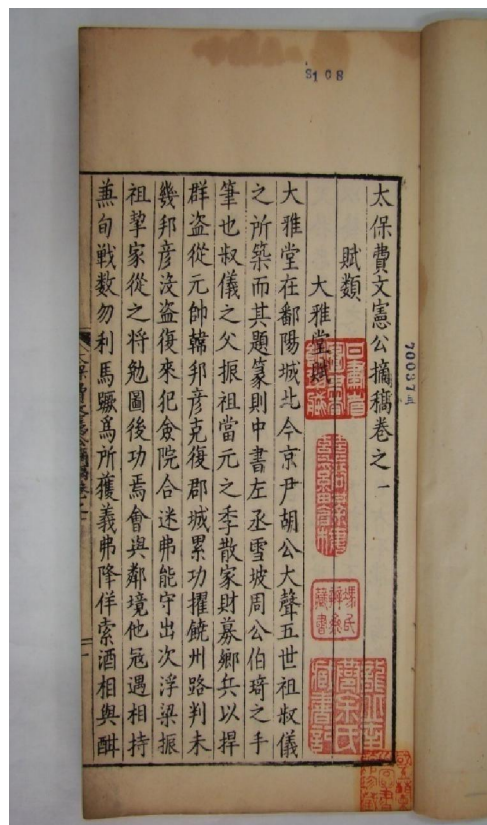 S108
70037
太保費文憲公摘稿卷之一
賦類
大雅堂賦
大雅堂在鄱陽城北今京尹胡公大聲五世祖叔儀
之所築而其題篆則中書左丞雪坡周公伯琦之手
筆也叔儀之父振祖當元之季散家財募鄉兵以捍
群盜從元帥韓邦彥克復郡城累功擢饒州路判未
幾邦彥沒盜復來犯僉院合迷弗能守出次浮梁振
祖挈家從之將勉圖後功焉會與鄰境他寇遇相持
兼旬戰數勿利馬蹶為所獲義弗降佯索酒相與酣